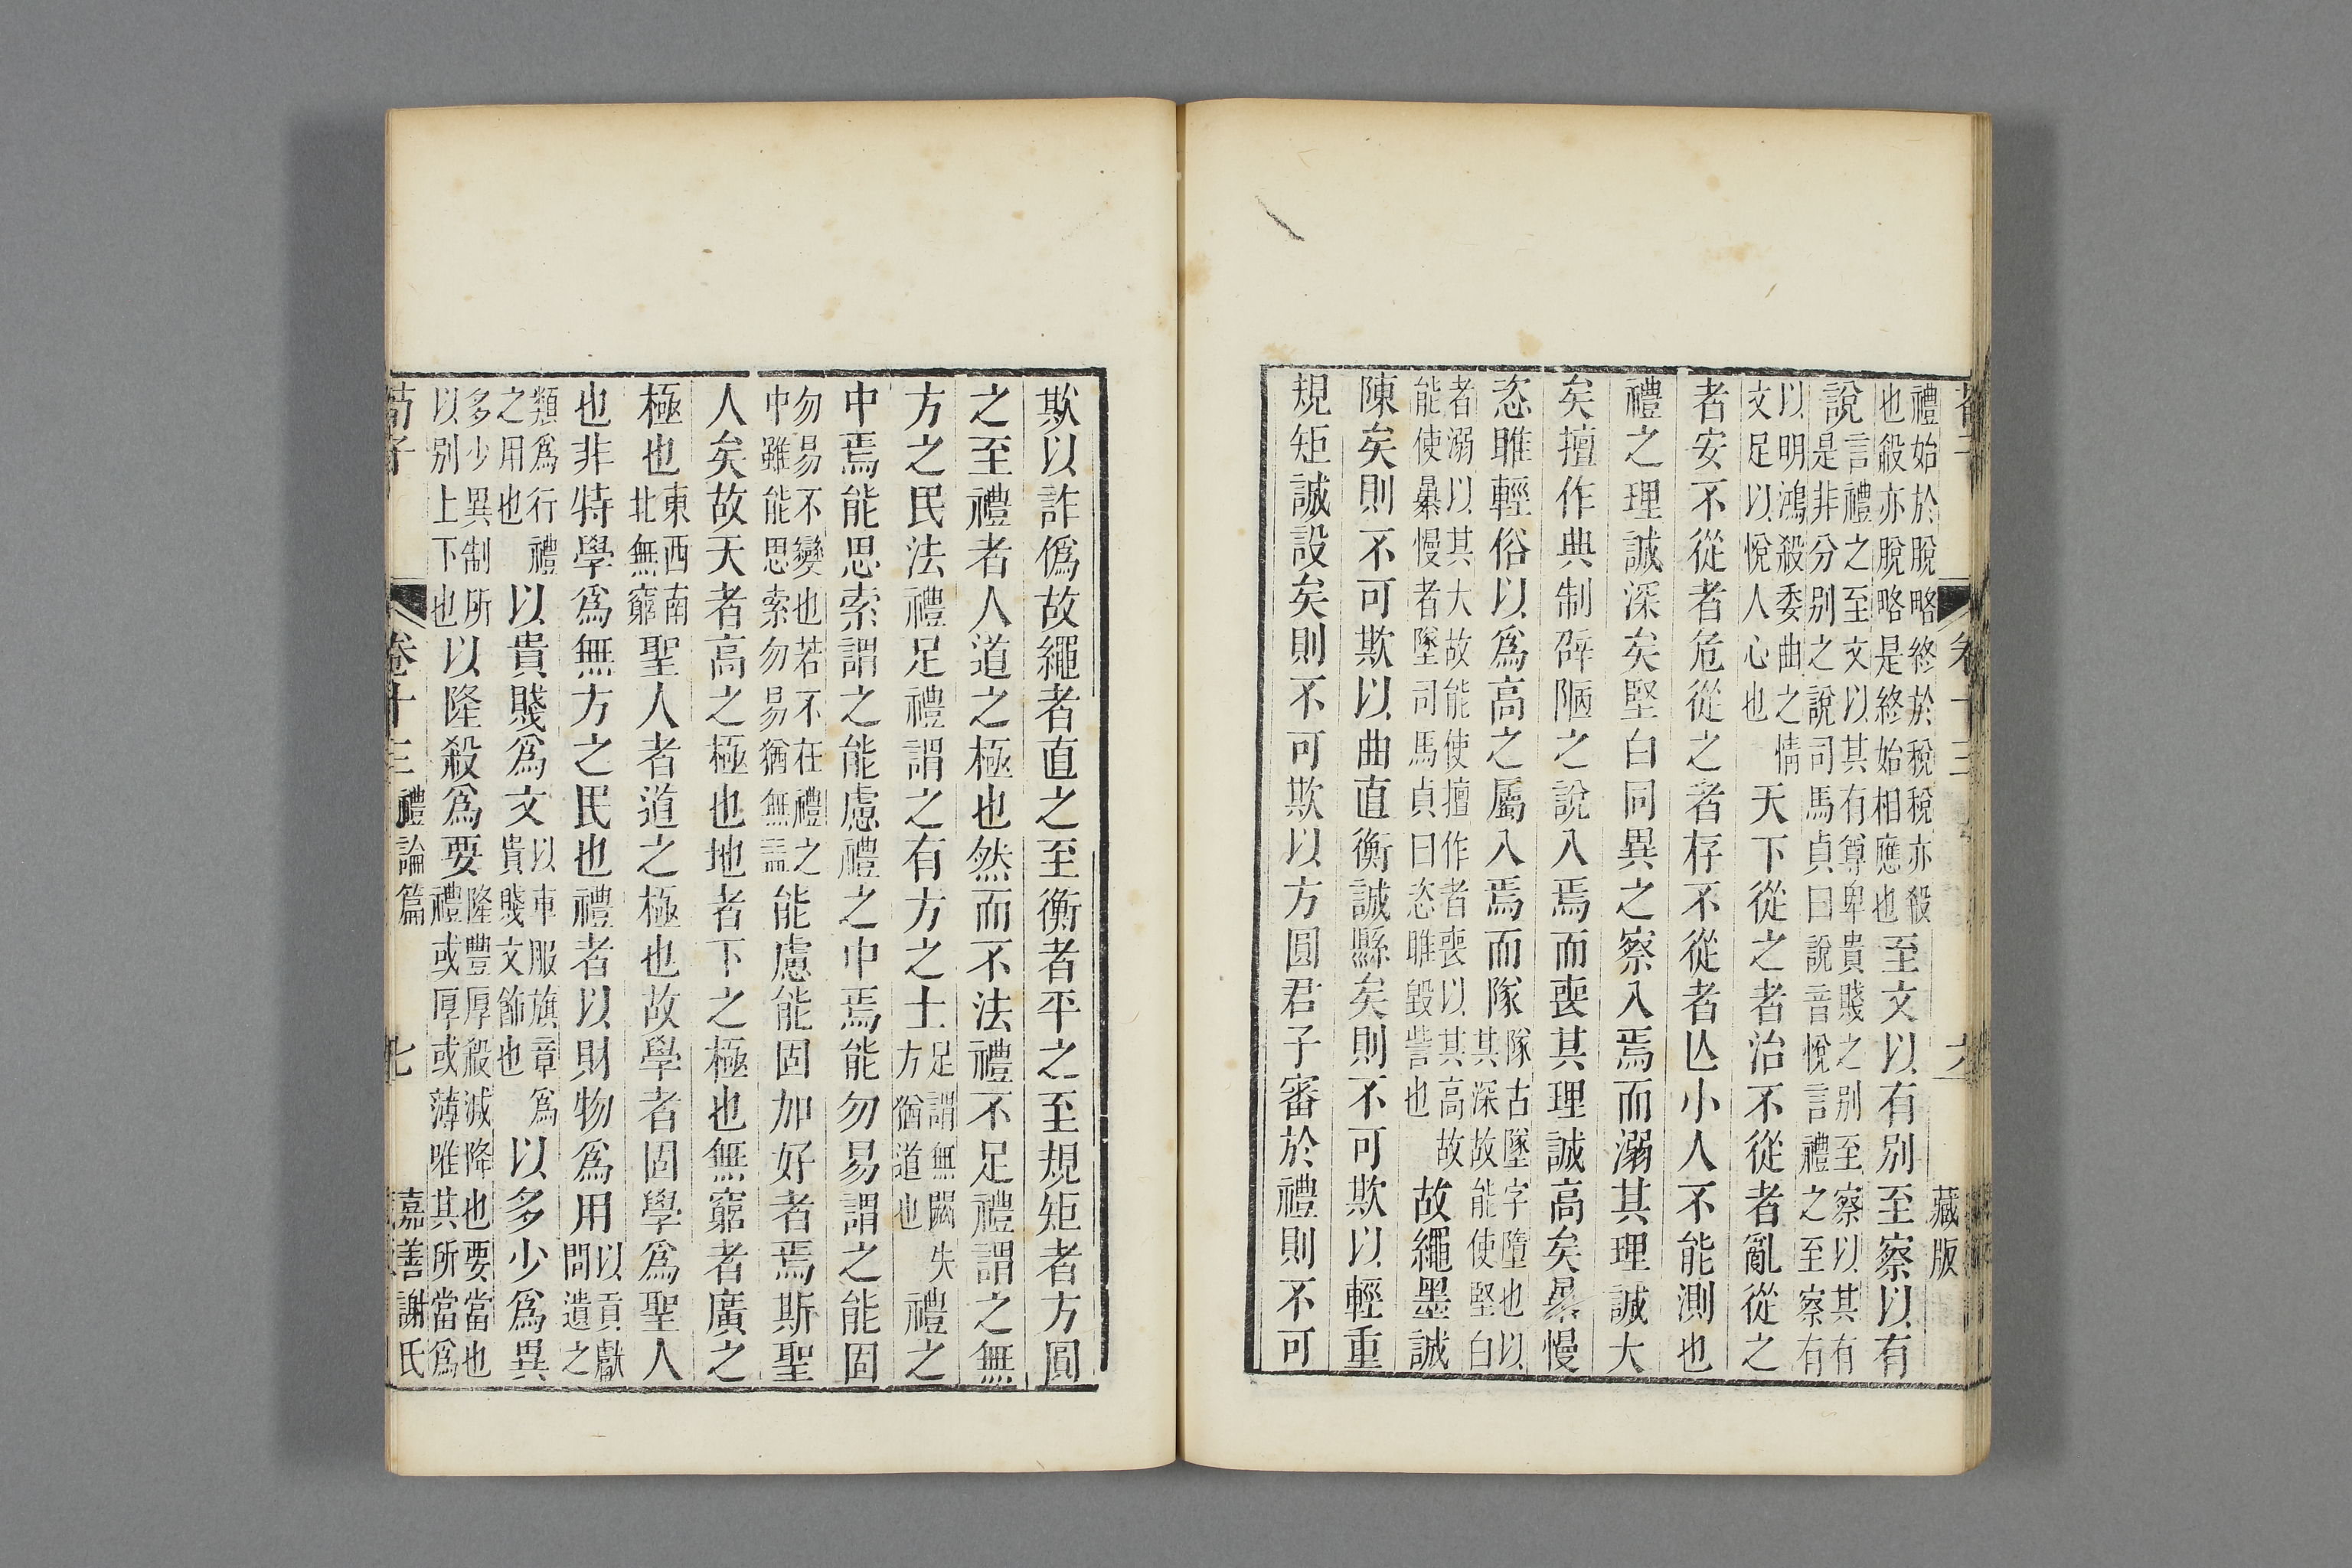 卷十三 藏版
禮始於脫略終於稅稅亦殺也殺亦脫略是終始相應也至文以有別至察以有
說言禮之至文以其有尊卑貴賤之別至察以其有是非分別之說司馬貞曰說音悅言禮之至察有
以明鴻殺委曲之情文足以悅人心也天下從之者治不從者亂從之
者安不從者危從之者存不從者亾小人不能測也
禮之理誠深矣堅白同異之察入焉而溺其理誠大
矣擅作典制辟陋之說入焉而喪其理誠高矣㬥慢
恣睢輕俗以爲高之屬入焉而隊隊古墜字墮也以其深故能使堅白
者溺以其大故能使擅作者喪以其高故能使㬥慢者墜司馬貞曰恣睢毀訾也故繩墨誠
陳矣則不可欺以曲直衡誠縣矣則不可欺以輕重
規矩誠設矣則不可欺以方圓君子審於禮則不可
欺以詐僞故繩者直之至衡者平之至規矩者方圓
之至禮者人道之極也然而不法禮不足禮謂之無
方之民法禮足禮謂之有方之士足謂無闕失方猶道也禮之
中焉能思索謂之能慮禮之中焉能勿易謂之能固
勿易不變也若不在禮之中雖能思索勿易猶無益能慮能固加好者焉斯聖
人矣故天者高之極也地者下之極也無窮者廣之
極也東西南北無窮聖人者道之極也故學者固學爲聖人
也非特學爲無方之民也禮者以財物爲用以貢獻問遺之
類爲行禮之用也以貴賤爲文以車服旗章爲貴賤文飾也以多少爲異
多少異制所以別上下也以隆殺爲要隆豐厚殺減降也要當也禮或厚或薄唯其所當爲
荀子 卷十三 禮論篇 七 嘉善謝氏